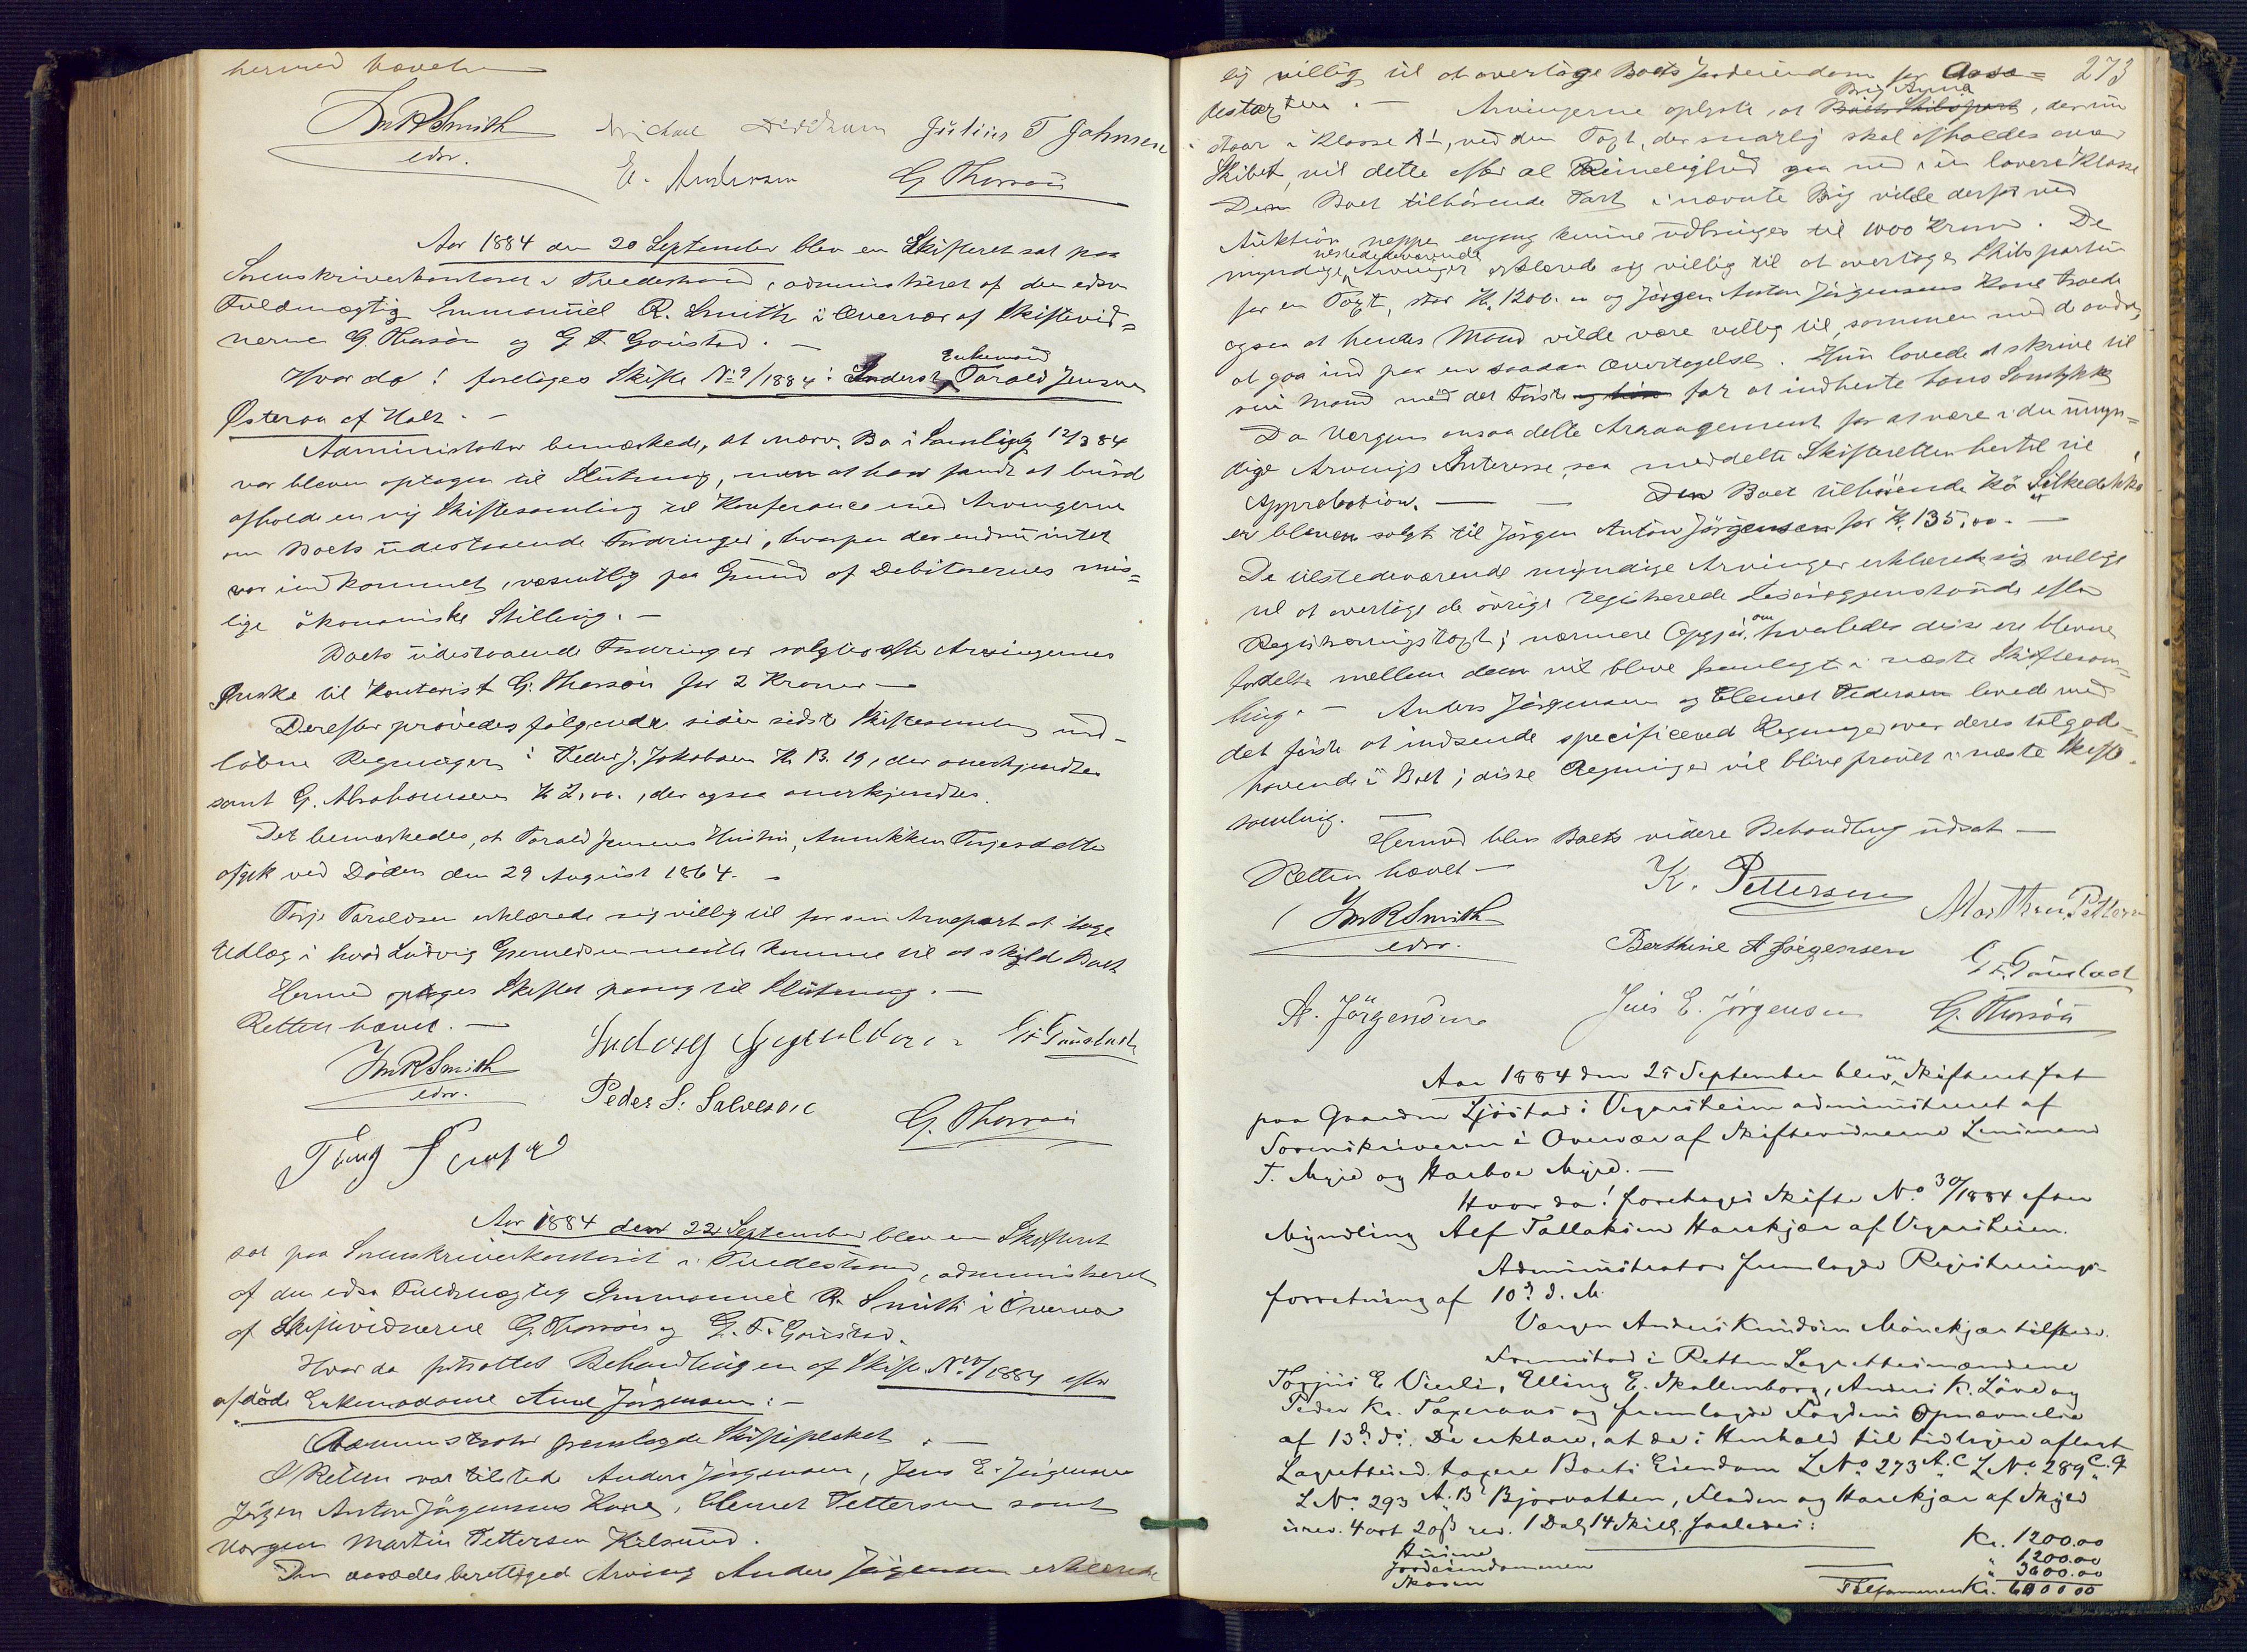 hermed hævet.
ImRSmith
edsv.
Julius T Johnsen
E. Andersen
G. Thorsøn
Aar 1884 den 20 September blev en Skifteret sat paa
Sorenskriverkontoret i Tvedestrand, administreret af den edsv
Fuldmægtig Immanuel R. Smith i Overvær af Skiftevid=
nerne G. Thorsøn og G. F. Goustad. —
Hvor da! foretoges Skifte No 9/1884: Enkemand Tarald Jensen
Østeraa af Holt. —
Administrator bemærkede, at nærv. Bo i Samling 12/3 84
var bleven optagen til Slutning, men at han fandt at burde
afholde en ny Skiftesamling til Konferance med Arvingerne
om Boets udestaaende Fordringer, hvorpaa der endnu intet
var indkommet, væsentlig paa Grund af Debitorernes mis=
lige økonomiske Stilling. —
Boets udestaaende Fordringer solgtes efter Arvingernes
Ønske til Kontorist G. Thorsøn for 2 Kroner —
Derefter prøvedes følgende siden sidste Skiftesamling ind-
løbne Regninger: Peder J. Jakobsen Kr. 13. 19, der anerkjendtes
samt G. Abrahamsen Kr 2,00., der ogsaa anerkjendtes.
Det bemærkedes, at Tarald Jensens Hustru, Annikken Terjesdatter
afgik ved Døden den 29 August 1864. —
Terje Taraldsen erklærede sig villig til for sin Arvepart at tage
Udlæg i hvad Ludvig maatte komme til at skylde Boet
Hermed optoges Skiftet paany til Slutning. —
Retten hævet. —
ImRSmith
edsv.
Ludvig
G. F. Goustad
Peder S. Salvesen
G. Thorsøn
Aar 1884 den 22 September blev en Skifteret
sat paa Sorenskriverkontoret i Tvedestrand, administreret
af den edsv Fuldmægtig Immanuel R. Smith i Overvær
af Skiftevidnerne G. Thorsøn og G. F. Goustad.
Hvor da fortsattes Behandlingen af Skifte No 10/1884 efter
afdøde Enkemadame Anne Jørgensen: —
Administrator fremlagde Skifteplakat. —
I Retten var tilstede Anders Jørgensen, Jens E. Jørgensen
Jørgen Anton Jørgensens Kone, Clemet Pettersen samt
Værgen Martin Pettersen Kilsund.
Den aasædesberettigede Arving Anders Jørgensen erklærede
273
sig villig til at overtage Boets Jordeiendom for Aasæ=
destaxten. — Arvingerne oplyste, at Brig Anna Boets Skibspart, der nu
staar i Klasse A1, ved den Taxt, der snarlig skal afholdes over
Skibet, vil dette efter al Rimelighed gaa ned i en lavere Klasse
Den Boet tilhørende Part i nævnte Brig vilde derfor ved
Auktion neppe engang kunne udbringes til 1000 Kroner. De
myndige tilstedeværende Arvinger erklærede sig villig til at overtage Skibsparten
for en Taxt, stor Kr. 1200. og Jørgen Anton Jørgensens Kone troede
ogsaa at hendes Mand vilde være villig til sammen med de andre
at gaa ind paa en saadan Overtagelse. Hun lovede at skrive til
sin Mand med det første for at indhente hans Samtykke
Da Værgen ansaa dette Arrangement for at være i den umyn=
dige Arvings Interesse, saa meddelte Skifteretten hertil sin
Approbation. — — Den Boet tilhørende Kø Silkedokka
er bleven solgt til Jørgen Anton Jørgensen for Kr. 135,00. —
De tilstedeværende myndige Arvinger erklærede sig villige
til at overtage de øvrige registrerede Løsøregjenstande efter
Registreringstaxt; nærmere Opgjør om hvorledes disse ere blevne
fordelte mellem dem vil blive fremlagt i næste Skiftesam=
ling. — Anders Jørgensen og Clemet Pedersen lovede med
det første at indsende specificered Regninger over deres tilgode-
havende i Boet; disse Regninger vil blive prøvet i næste Skifte-
samling.
Hermed blev Boets videre Behandling udsat —
Retten hævet —
ImRSmith
edsv.
K. Pettersen
Marthin Pettersen
Berthine A Jørgensen
G. F. Goustad
A. Jörgensen
Jens E. Jørgensen
G. Thorsøn
Aar 1884 den 25 September blev en Skifteret sat
paa Gaarden Ljøstad i Vegarsheien administreret af
Sorenskriveren i Overvær af Skiftevidnerne Lensmand
T. Myre og Harboe Myre. —
Hvor da! foretoges Skifte No. 30/1884 efter
Myndling Alef Tallaksen Harekjær af Vegarsheien.
Administrator fremlagde Registrerings-
forretning af 10de d. M.
Værgen Anders Knudsen Mönekjær tilstede.
Fremstod i Retten Lagrettesmændene
Torjus E Vierli, Elling E. Skallenborg, Anders K. Löve og
Peder Kr. Toperaas og fremlagde Fogdens Opnævnelse
af 13de ds. De erklære, at de i Henhold til tidligere aflagt
Lagrettesed taxere Boets Eiendom LNo 273 A.C LNo. 289 C. &
LNo. 293 A. B Bjorvatten, Fladen og Harekjær af Skyld
urev. 4 ort 20 ß rev. 1 Dal. 14 Skill. saaledes:
Husene Kr. 1200.00
Jordeiendommen — " 1200.00
Skoven " 3600.00
Tilsammen Kr. 6000 00